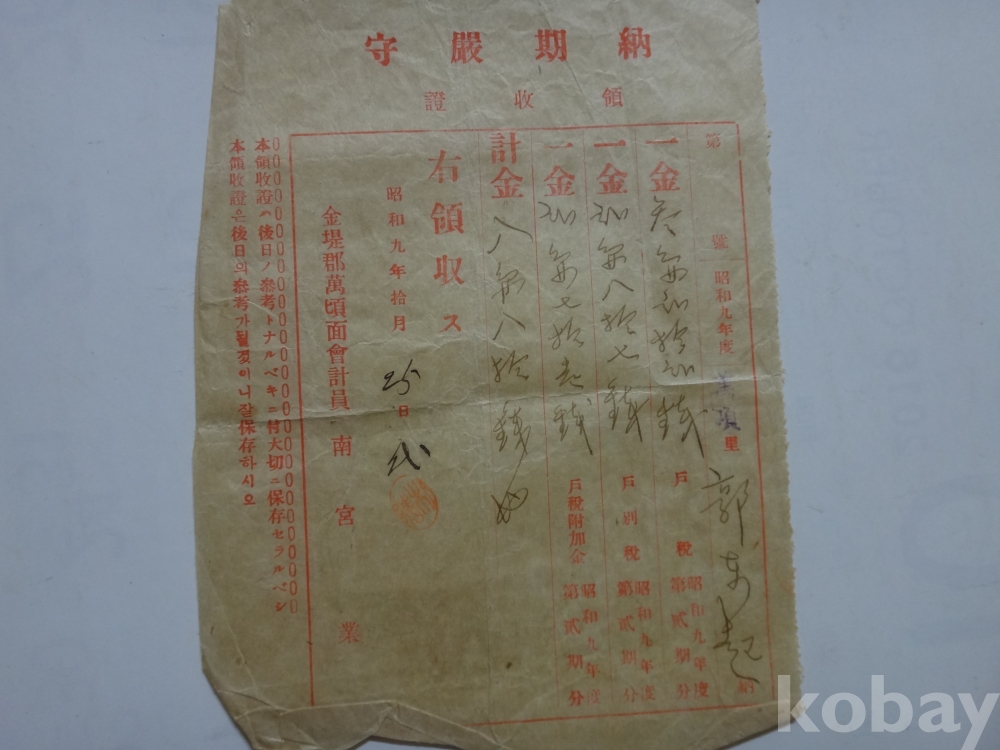 納期嚴守
領收證
第 號 昭和九年度 萬頃里 郭 起 納
一金 參 貳拾貳錢 戶稅 昭和九年度第貳期分
一金 貳 八拾七錢 戶別稅 昭和九年度第貳期分
一金 貳 七拾 錢 戶稅附加金 昭和九年度第貳期分
計金 八 八拾錢也
右領収ス
昭和九年拾月25日
金堤郡萬頃面會計員 南宮業
本領收證ハ後日ノ參考トナルベキニ付大切ニ保存セラルベシ
本領收證은後日의參考가될것이니잘保存하시오
kobay